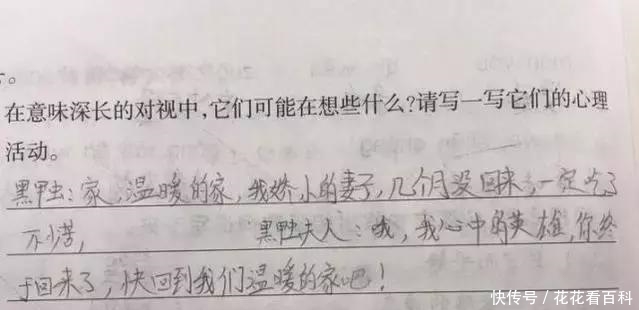 在意味深长的对视中,它们可能在想些什么?请写一写它们的心理
活动。
黑甲虫:家,温暖的家,我娇小的妻子,几个月没回来,一定吃了
不少苦, 黑甲虫夫人:哦,我心中的英雄,你终
于回来了,快回到我们温暖的家吧!
快传号/花花看百科